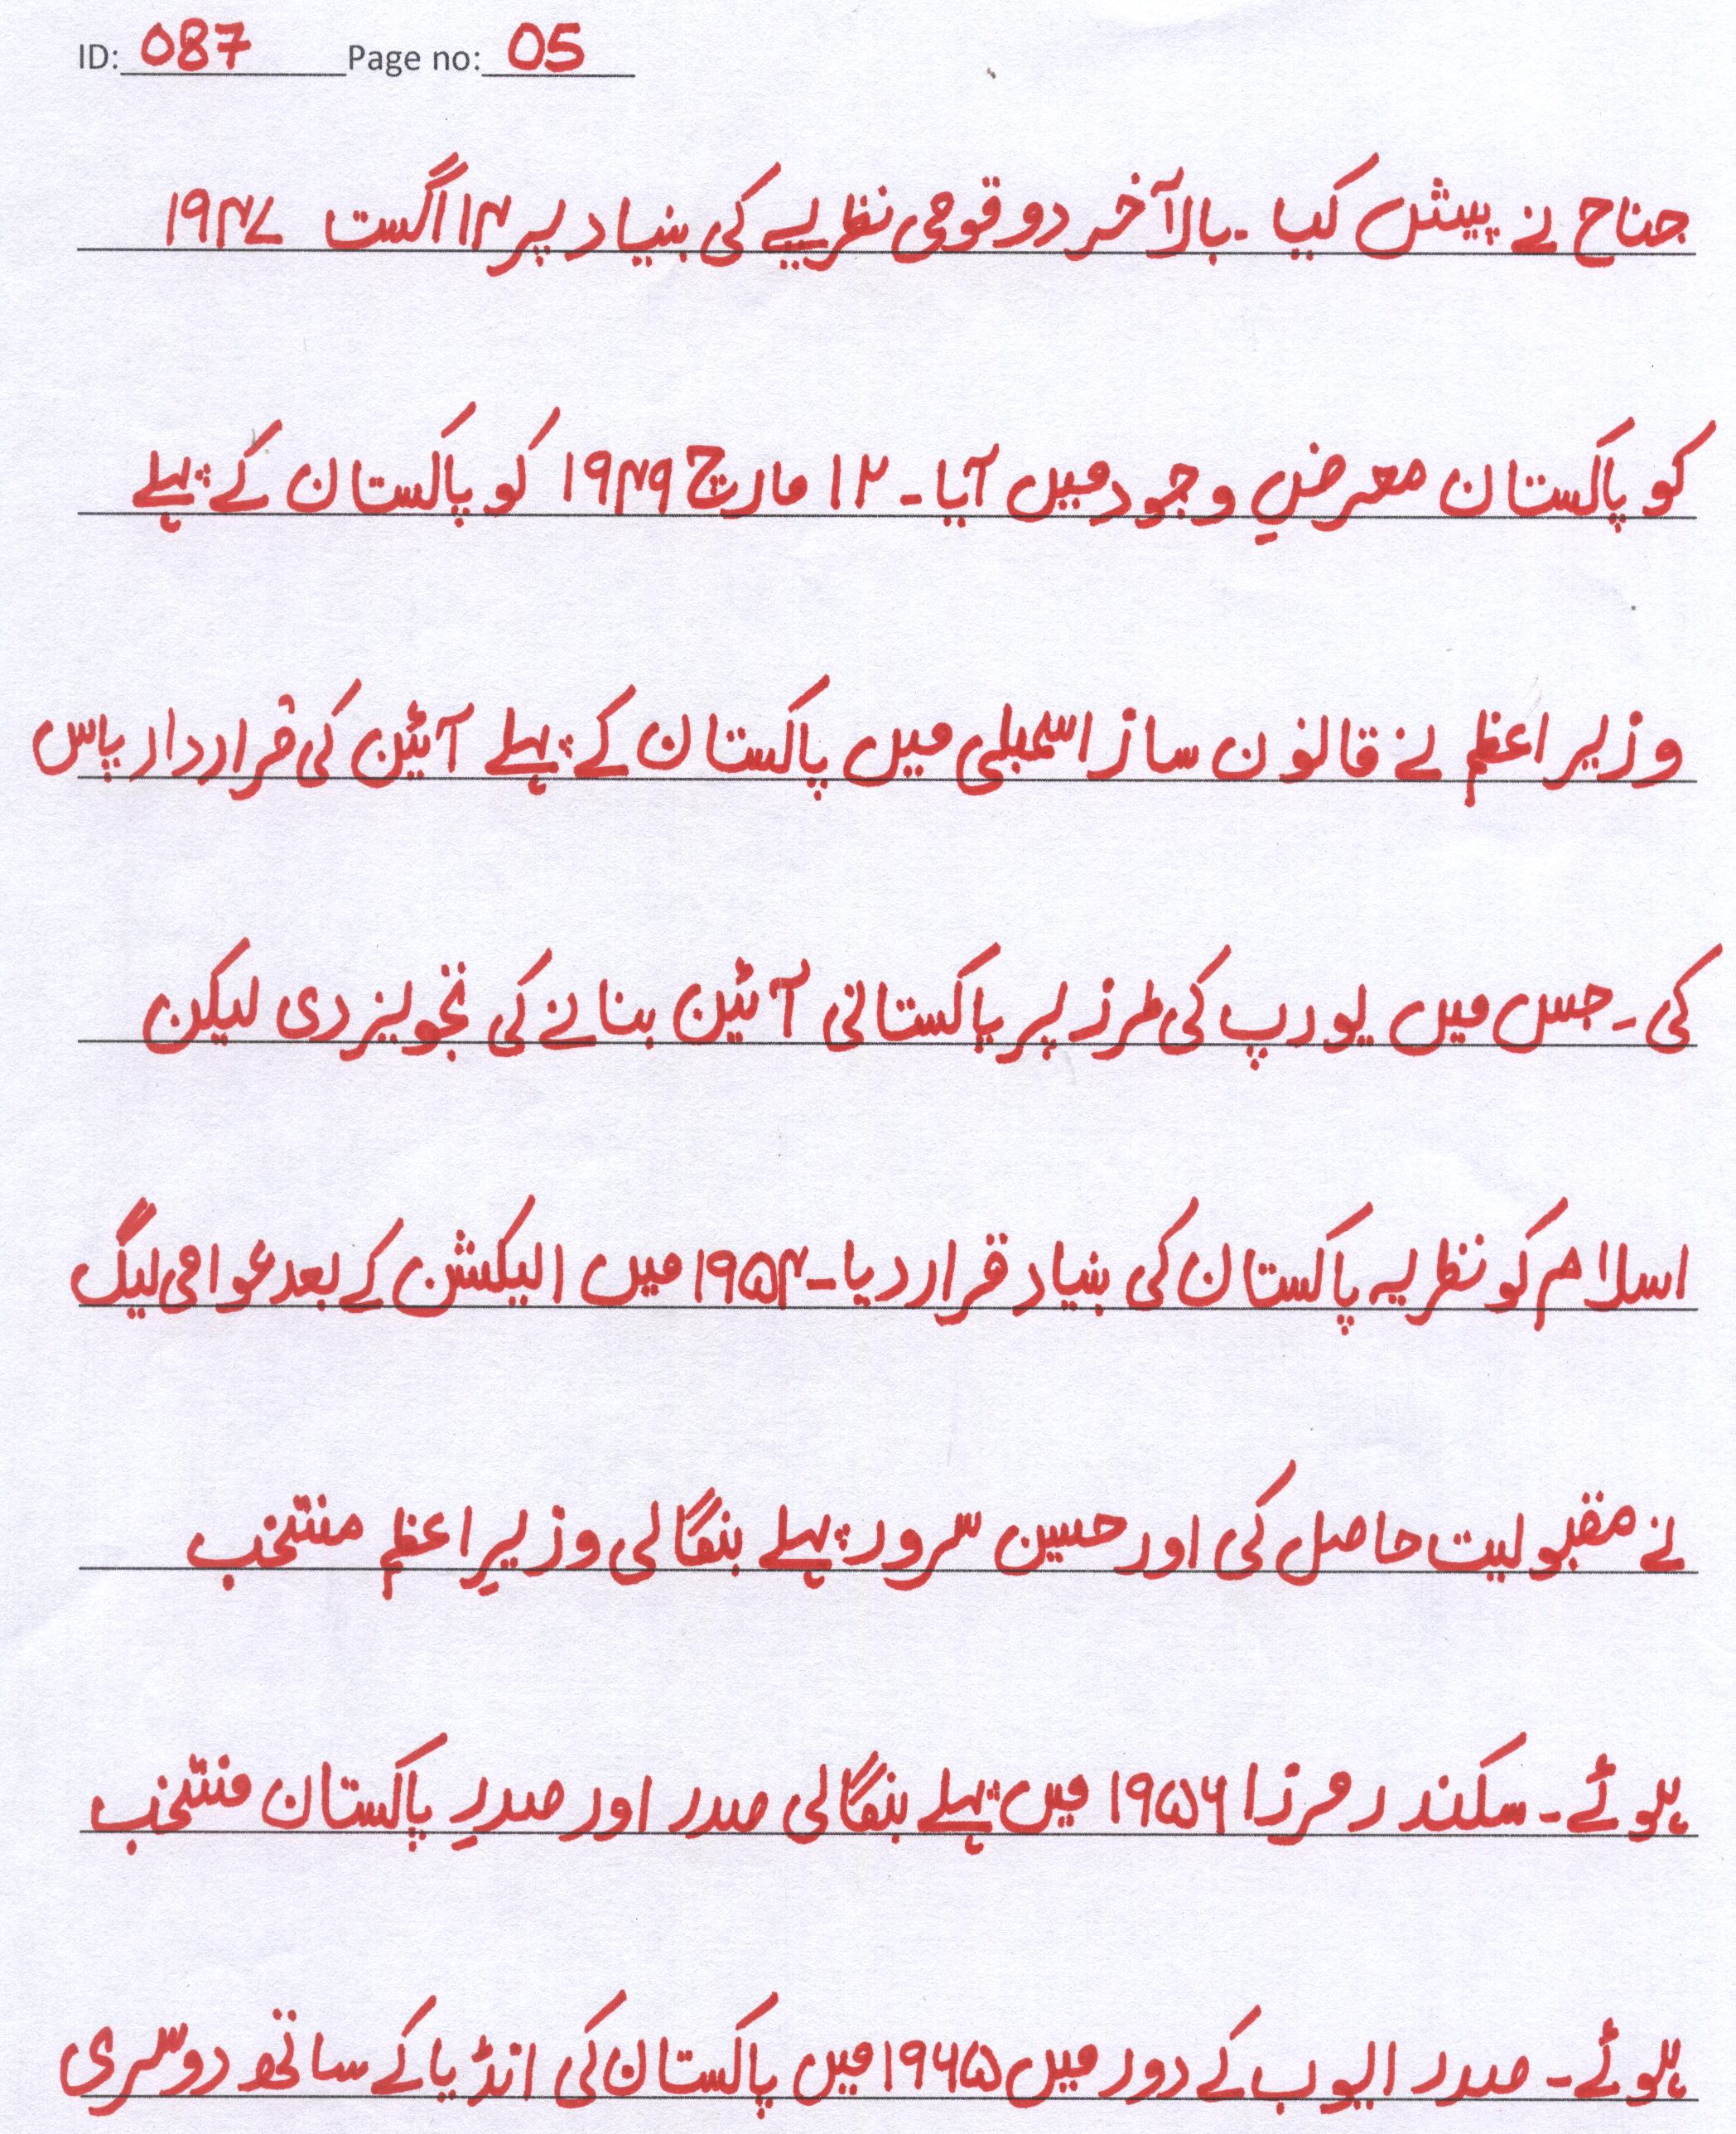 ID: 087 Page no: 05
جناح نے پیش کیا ۔ بالاآخر دو قومی نظریے کی بنیاد پر ۱۴ اگست ۱۹۴۷
کو پاکستان معرضِ وجود میں آیا ۔ ۱۲ مارچ ۱۹۴۹ کو پاکستان کے پہلے
وزیر اعظم نے قانون ساز اسمبلی میں پاکستان کے پہلے آئین کی قرارداد پاس
کی ۔ جس میں یورپ کی طرز پر پاکستانی آئین بنانے کی تجویز دی لیکن
اسلام کو نظریہ پاکستان کی بنیاد قرار دیا ۔ ۱۹۵۴ میں الیکشن کے بعد عوامی لیگ
نے مقبولیت حاصل کی اور حسین سرور پہلے بنگالی وزیرِ اعظم منتخب
ہوئے ۔ سکندر مرزا ۱۹۵۶ میں پہلے بنگالی صدر اور صدرِ پاکستان منتخب
ہوئے ۔ صدر ایوب کے دور میں ۱۹۶۵ میں پاکستان کی انڈیا کے ساتھ دوسری